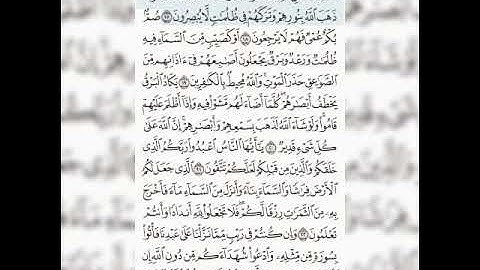 ذَهَبَ ٱللَّهُ بِنُورِهِمْ وَتَرَكَهُمْ فِى ظُلُمَٰتٍ لَّا يُبْصِرُونَ ١٧ صُمٌّۢ
بُكْمٌ عُمْىٌ فَهُمْ لَا يَرْجِعُونَ ١٨ أَوْ كَصَيِّبٍ مِّنَ ٱلسَّمَآءِ فِيهِ
ظُلُمَٰتٌ وَرَعْدٌ وَبَرْقٌ يَجْعَلُونَ أَصَٰبِعَهُمْ فِىٓ ءَاذَانِهِم مِّنَ
ٱلصَّوَٰعِقِ حَذَرَ ٱلْمَوْتِ وَٱللَّهُ مُحِيطٌۢ بِٱلْكَٰفِرِينَ ١٩ يَكَادُ ٱلْبَرْقُ
يَخْطَفُ أَبْصَٰرَهُمْ كُلَّمَآ أَضَآءَ لَهُم مَّشَوْا۟ فِيهِ وَإِذَآ أَظْلَمَ عَلَيْهِمْ
قَامُوا۟ وَلَوْ شَآءَ ٱللَّهُ لَذَهَبَ بِسَمْعِهِمْ وَأَبْصَٰرِهِمْ إِنَّ ٱللَّهَ عَلَىٰ
كُلِّ شَىْءٍ قَدِيرٌ ٢٠ يَٰٓأَيُّهَا ٱلنَّاسُ ٱعْبُدُوا۟ رَبَّكُمُ ٱلَّذِى
خَلَقَكُمْ وَٱلَّذِينَ مِن قَبْلِكُمْ لَعَلَّكُمْ تَتَّقُونَ ٢١ ٱلَّذِى جَعَلَ لَكُمُ
ٱلْأَرْضَ فِرَٰشًا وَٱلسَّمَآءَ بِنَآءً وَأَنزَلَ مِنَ ٱلسَّمَآءِ مَآءً فَأَخْرَجَ
بِهِۦ مِنَ ٱلثَّمَرَٰتِ رِزْقًا لَّكُمْ فَلَا تَجْعَلُوا۟ لِلَّهِ أَندَادًا وَأَنتُمْ
تَعْلَمُونَ ٢٢ وَإِن كُنتُمْ فِى رَيْبٍ مِّمَّا نَزَّلْنَا عَلَىٰ عَبْدِنَا فَأْتُوا۟
بِسُورَةٍ مِّن مِّثْلِهِۦ وَٱدْعُوا۟ شُهَدَآءَكُم مِّن دُونِ ٱللَّهِ إِن